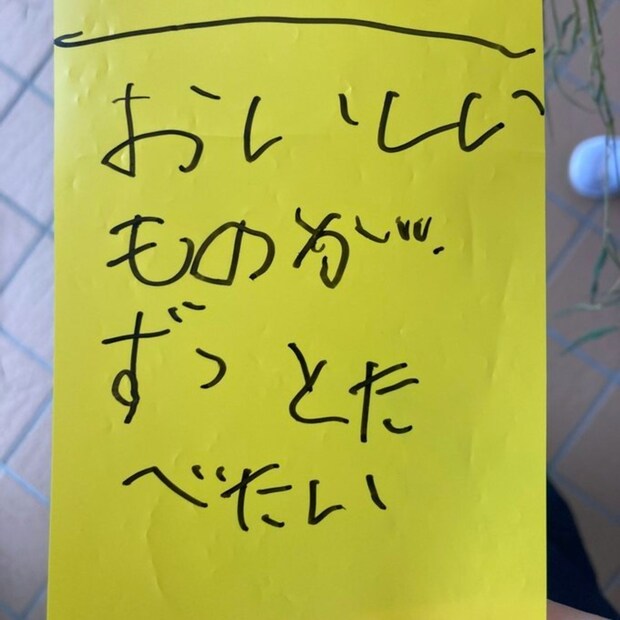 おいしい
ものが
ずっとた
べたい